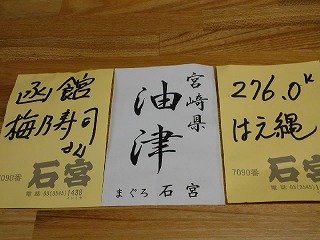 函館
梅乃寿司
さん
7090番
石宮
電話 03(3545)1430
宮崎県
油津
まぐろ 石宮
276.0K
はえ縄
7090番
石宮
電話 03(3545)1